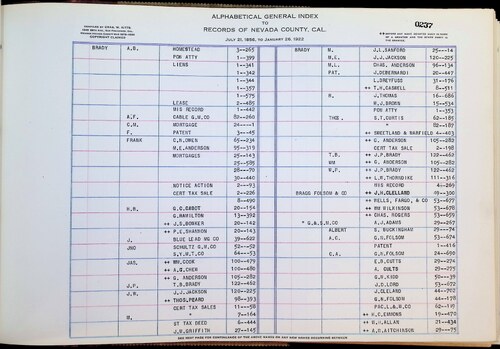 ALPHABETICAL GENERAL INDEX
TO
RECORDS OF NEVADA COUNTY, CAL.
0237
COPYRIGHT CLAIMED
BRADY A.B. HOMESTEAD 3—265 BRADY M. J.L.SANFORD 25—14
POW ATTY 1—399 M.E. J.J.JACKSON 120—225
LIENS 1—341 M.L. CHAS. ANDERSON 96—134
1—342 PAT. J.DEBERNARDI 20—447
1—344 L.DREYFUSS 31—176
1—357 ++ T.H.CASWELL 8—311
1—575 R. J.THOMAS 16—686
LEASE 2—485 W.J.BROWN 15—534
MIS RECORD 1—442 POW ATTY 1—353
A.F. CABLE G.M.CO 82—260 THOS. S.T.CURTIS 62—185
C.M. MORTGAGE 24——1 " 82—187
F. PATENT 3—45 ++ SWEETLAND & BARFIELD 4—403
FRANK C.H.OWEN 65—234 ++ G. ANDERSON 105—282
M.E.ANDERSON 95—319 CERT TAX SALE 2—198
MORTGAGES 25—143 T.B. ++ J.P.BRADY 122—462
25—585 WM ++ G. ANDERSON 105—282
28——70 W.P. ++ J.P.BRADY 122—462
30—440 ++ L.W.THORNDIKE 111—316
NOTICE ACTION 2—93 MIS RECORD 4—269
CERT TAX SALE 2—226 BRAGG FOLSOM & CO ++ J.H.CLELLARD 49—300
8—490 ++ WELLS, FARGO, & CO 53—677
H.B. ++ G.C.GABOT 20—154 ++ WM WILKINSON 53—678
G.HAMILTON 13—392 ++ CHAS. ROGERS 53—659
++ J.S.BOWKER 20—142 " G.&S.M.CO A.J.ADAMS 29—267
++ P.E.SHANNON 20—143 ALBERT S. BUCKINGHAM 29—74
J. BLUE LEAD MG CO 39—622 A.E. G.N.FOLSOM 53—674
JNO SCHULTZ G.M.CO 52—52 PATENT 1—416
S.Y.W.T.CO 64—53 C.A. G.N.FOLSOM 24—690
JAS. ++ WM.COOK 100—479 E.B.CUTTS 29—24
++ A.G.CHEW 100—480 A. CULTS 29—275
++ G. ANDERSON 105—282 G.W.KIDD 50—39
J.P. T.B.BRADY 122—462 J.D.LORD 53—672
J.W. J.J.JACKSON 120—225 J.CLELLARD 44—702
++ THOS.PEARD 98—393 N.N.FOLSOM 44—178
CERT TAX SALES 11—58
" 7—164 ++ H.C.EMMONS 19—470
M. ST TAX DEED 6—444 ++ W.H.ALLAN 21—434
J.H.GRIFFITH 27—145 ++ A.D.AITCHISON 29—75